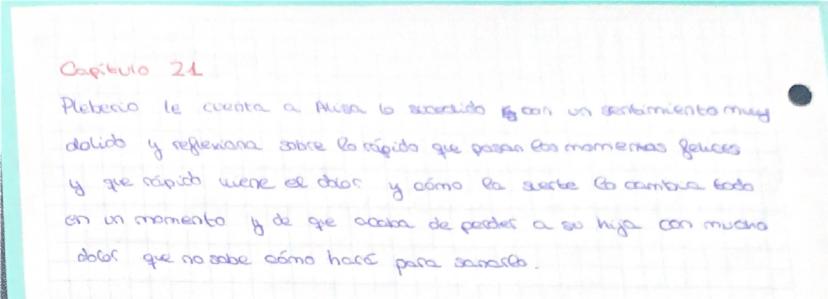 Capítulo 21
Pleberio le cuenta a Alisa lo sucedido con un sentimiento muy
dolido y reflexiona sobre lo rápido que pasan los momentos felices
y que rápido viene el dolor y cómo la suerte lo cambia todo
en un momento y de que acaba de perder a su hija con mucho
dolor que no sabe cómo hará para sanarlo.